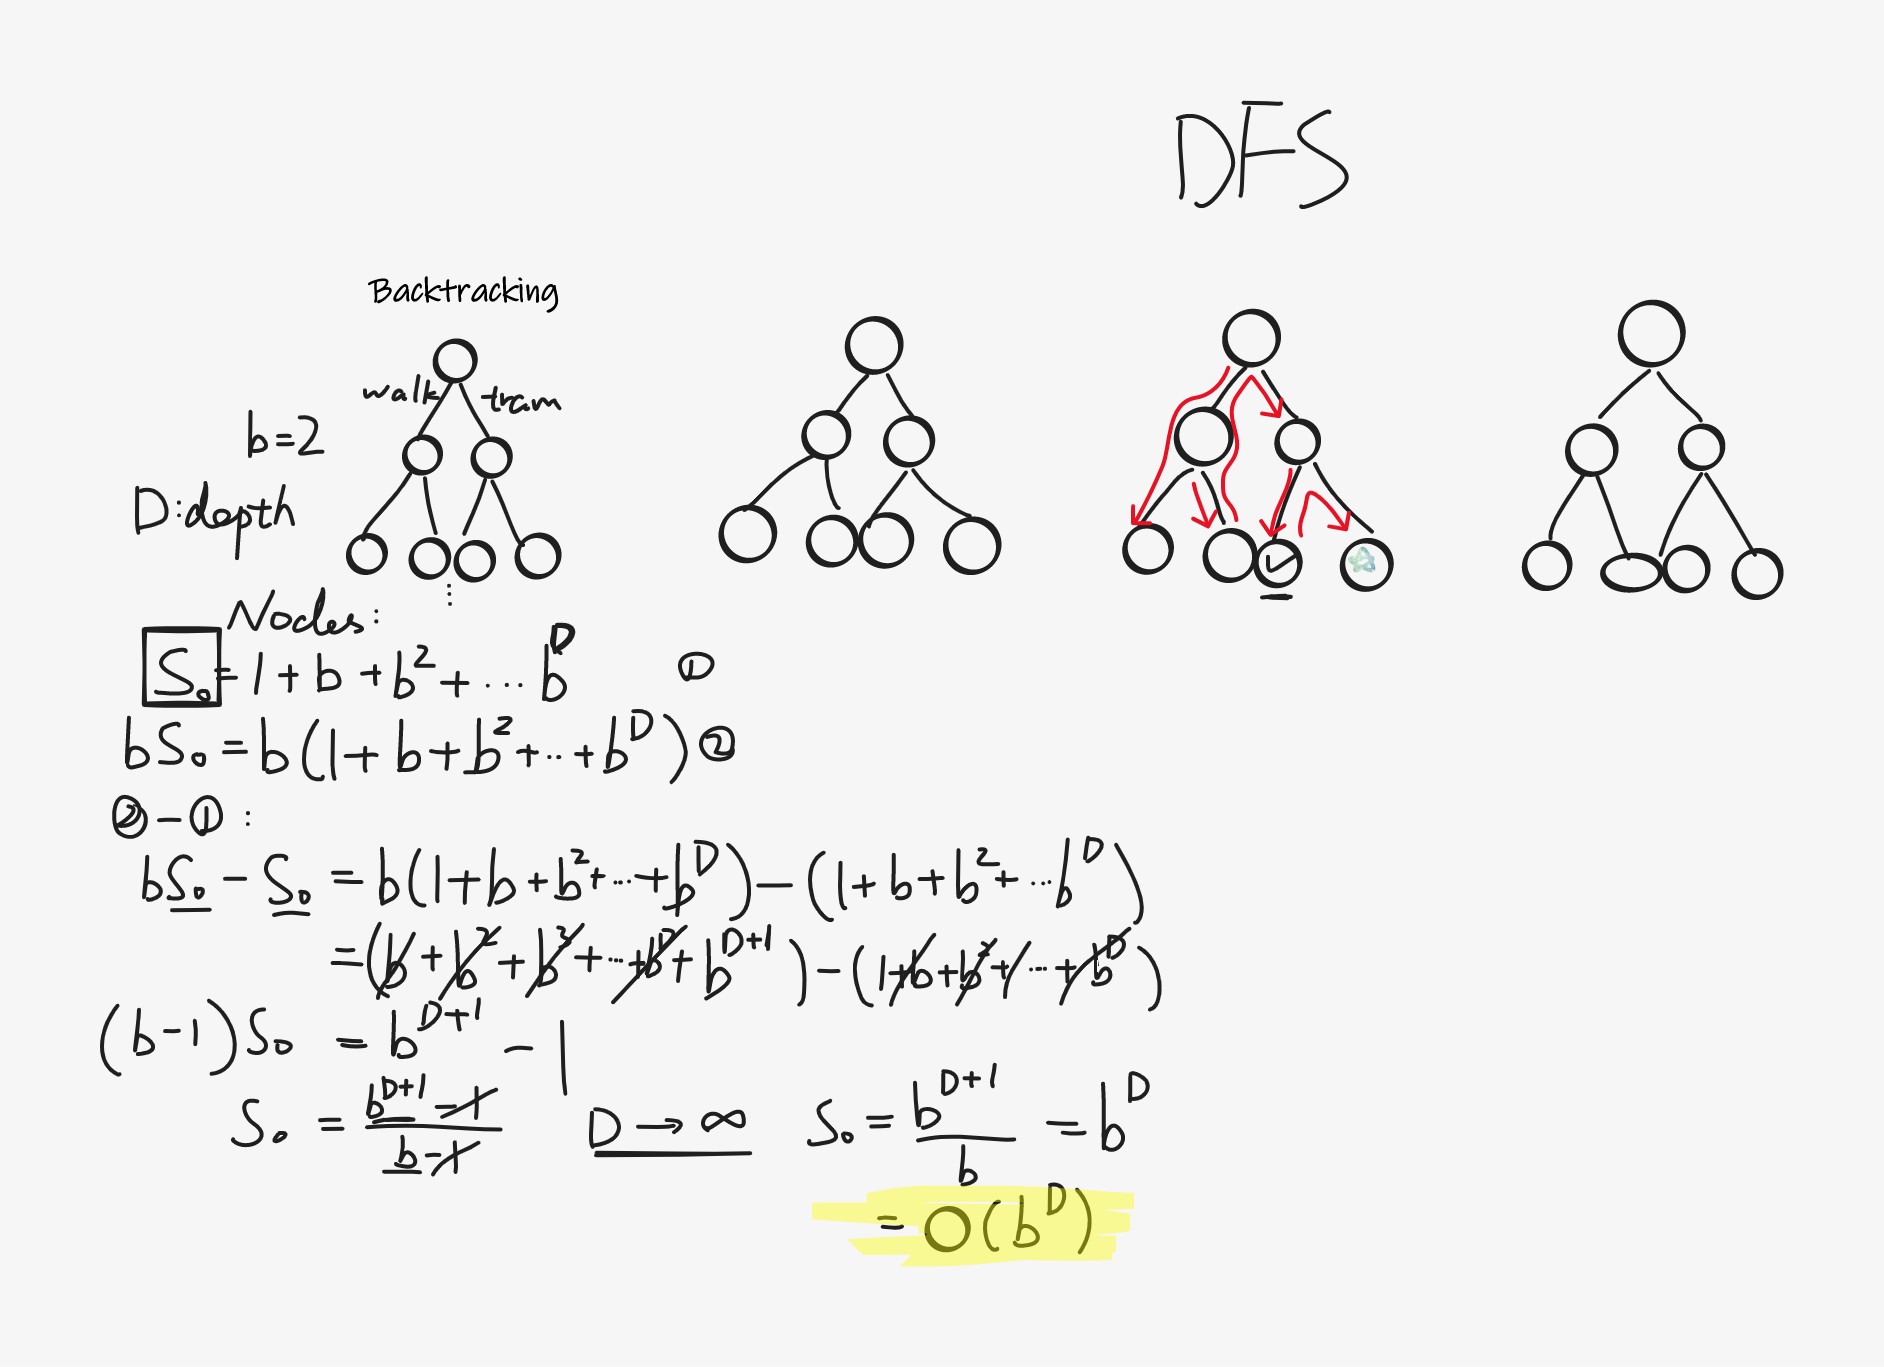 DFS
Backtracking
walk tram
b=2
D:depth
Nodes:
S₀ = 1 + b + b² + ... b^D ①
bS₀ = b(1 + b + b² + ... + b^D) ②
② - ① :
bS₀ - S₀ = b(1+b+b²+...+b^D) - (1+b+b²+...b^D)
= (b + b² + b³ + ... + b^D + b^{D+1}) - (1+b+b²+...+b^D)
(b-1)S₀ = b^{D+1} - 1
S₀ = (b^{D+1} - 1)/(b - 1) D → ∞ S₀ = b^{D+1}/b = b^D
= O(b^D)